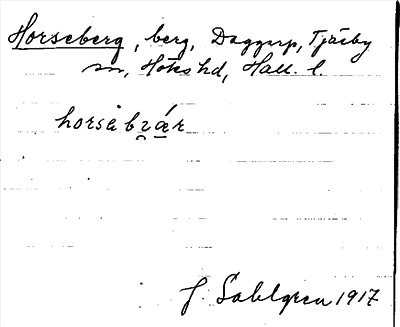 Horseberg, berg, Daggarp, Tjärby
sn, Höks hd, Hall. l.
horsəbɀǽr
J. Sahlgren 1917